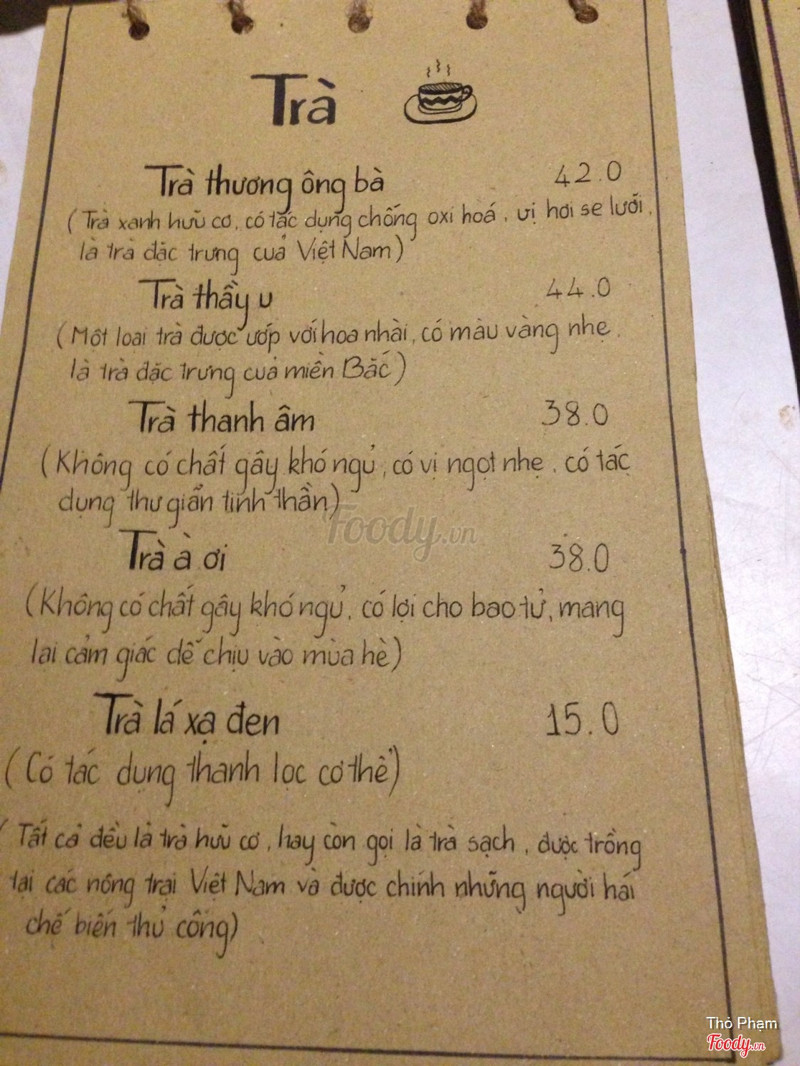 Trà
Trà thương ông bà 42.0
(Trà xanh hữu cơ, có tác dụng chống oxi hoá, vị hơi se lưỡi,
là trà đặc trưng của Việt Nam)
Trà thầy u 44.0
(Một loại trà được ướp với hoa nhài, có màu vàng nhẹ,
là trà đặc trưng của miền Bắc)
Trà thanh âm 38.0
(Không có chất gây khó ngủ, có vị ngọt nhẹ, có tác
dụng thư giãn tinh thần)
Trà à ơi 38.0
(Không có chất gây khó ngủ, có lợi cho bao tử, mang
lại cảm giác dễ chịu vào mùa hè)
Trà lá xạ đen 15.0
(Có tác dụng thanh lọc cơ thể)
(Tất cả đều là trà hữu cơ, hay còn gọi là trà sạch, được trồng
tại các nông trại Việt Nam và được chính những người hái
chế biến thủ công)
Foody.vn
Thỏ Phạm
Foody.vn